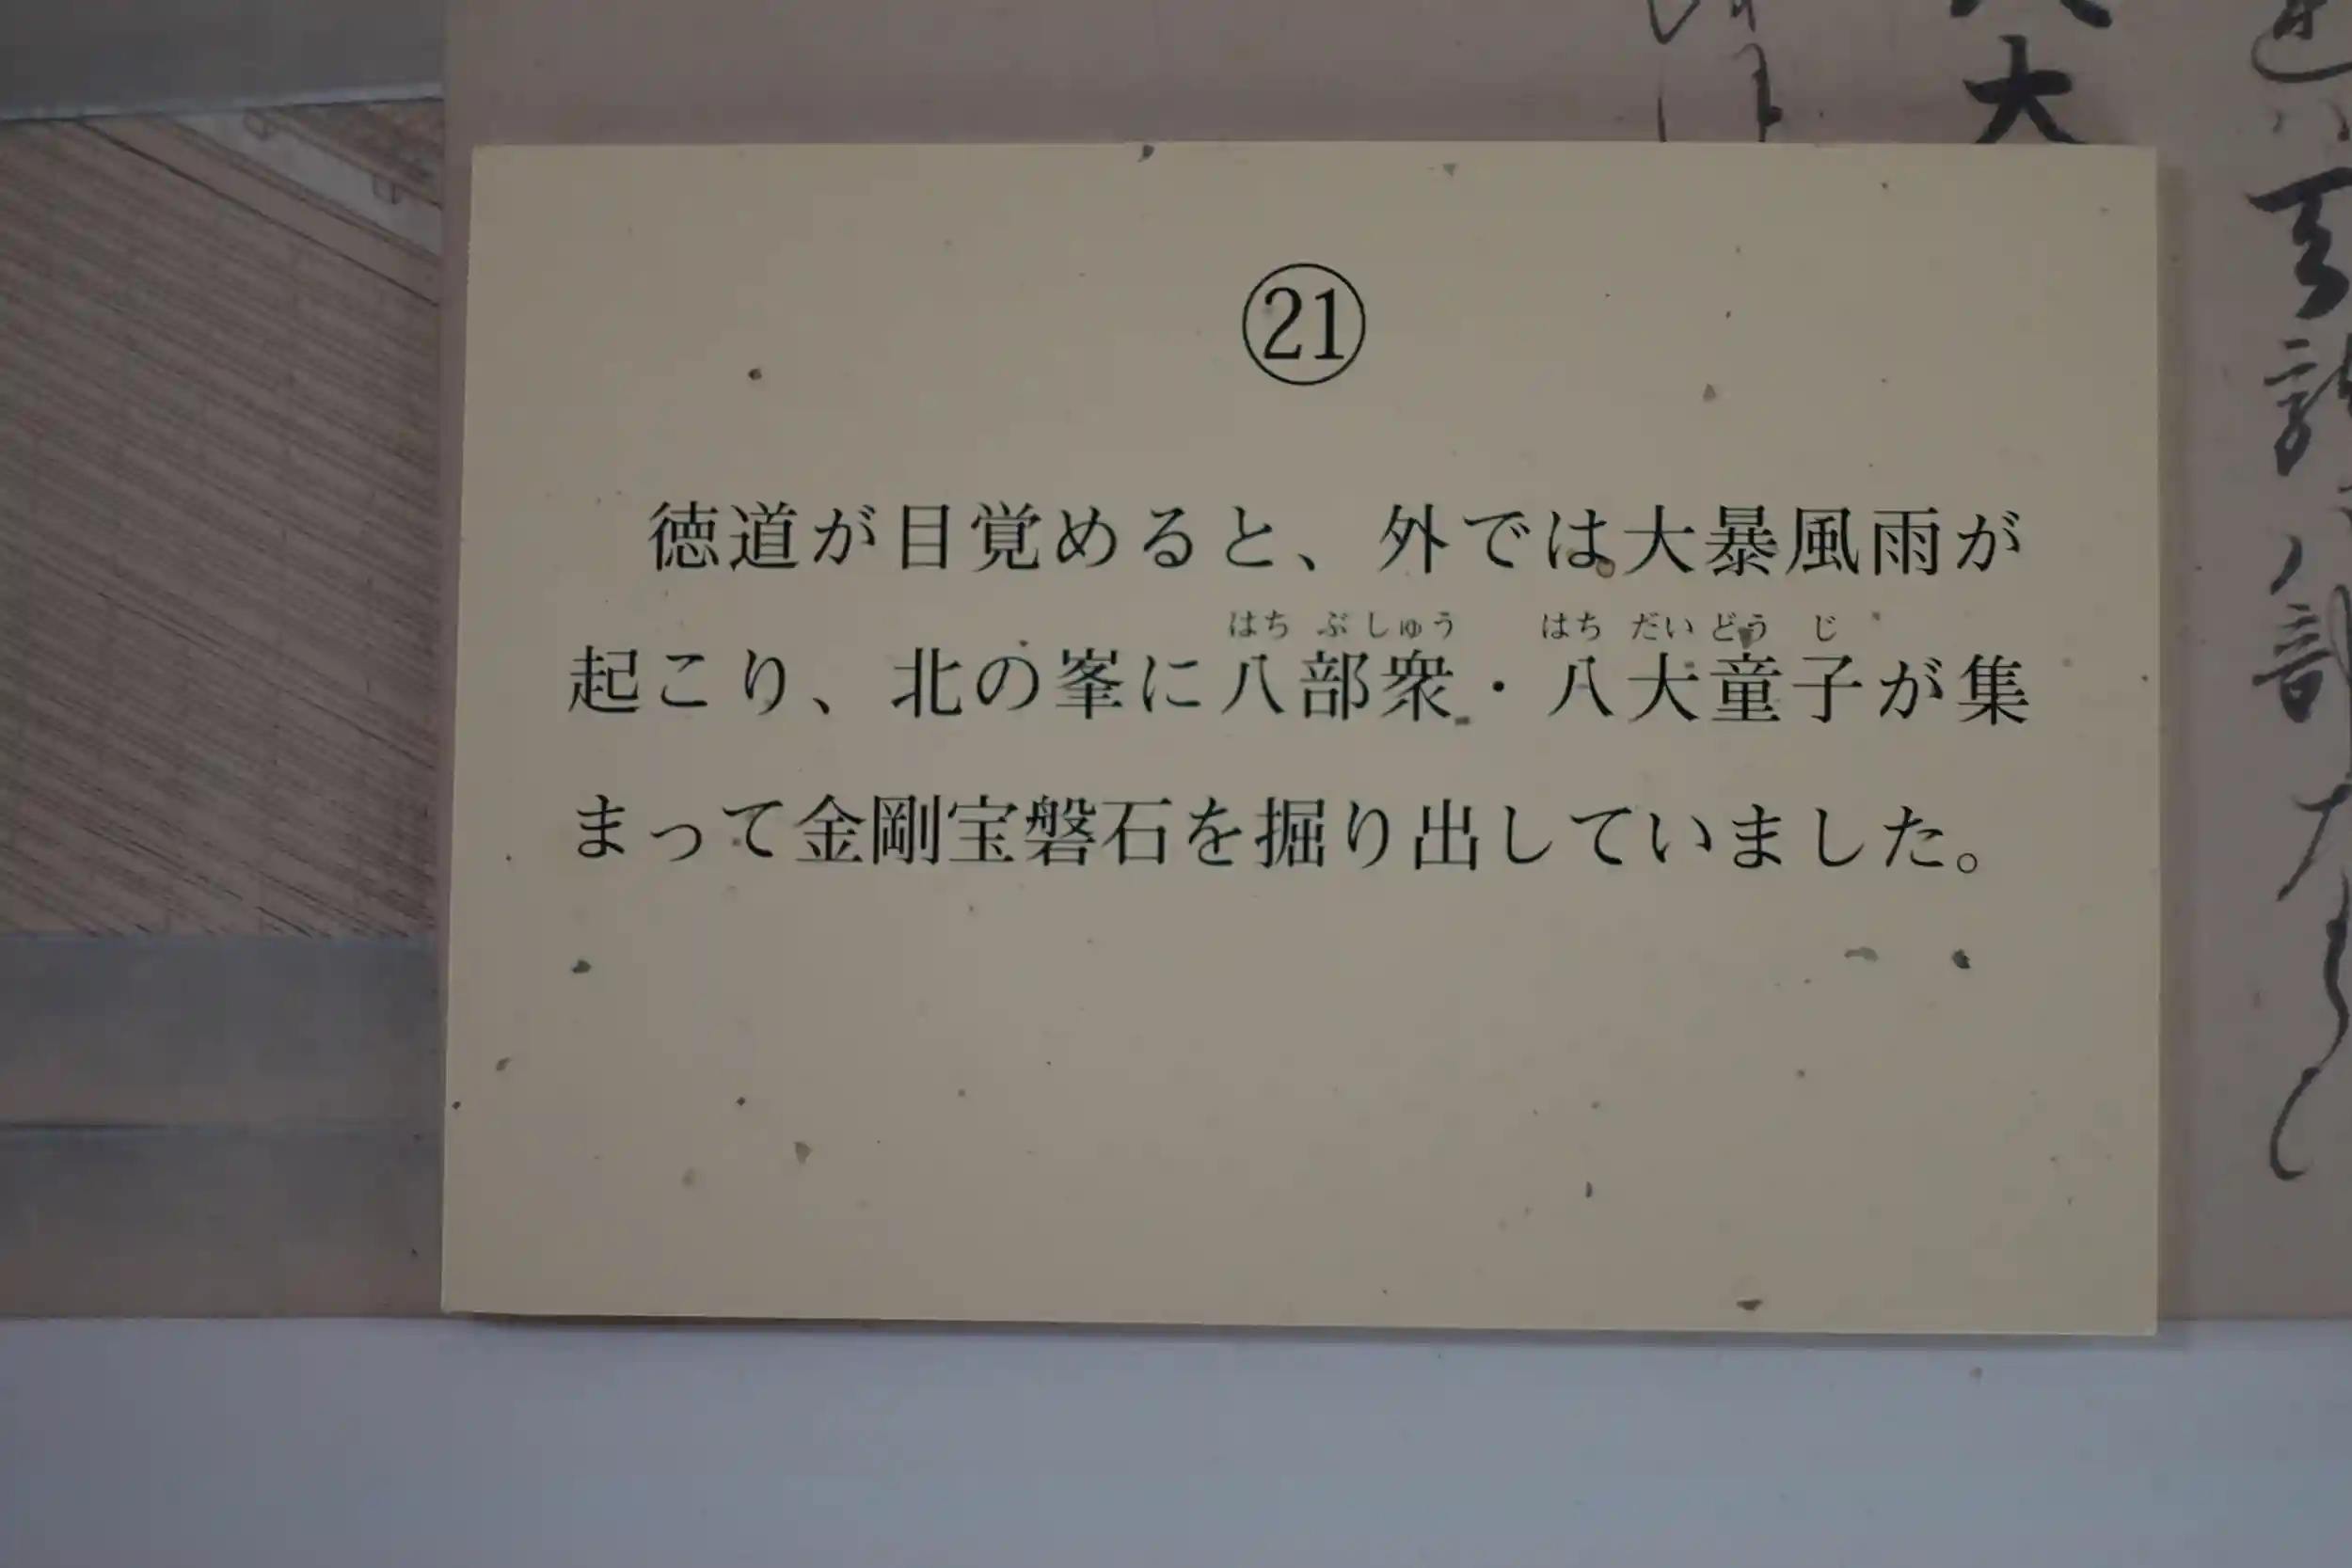 ㉑
徳道が目覚めると、外では大暴風雨が
はち ぶ しゅう はち だい どう じ
起こり、北の峯に八部衆・八大童子が集
まって金剛宝磐石を掘り出していました。
大
部